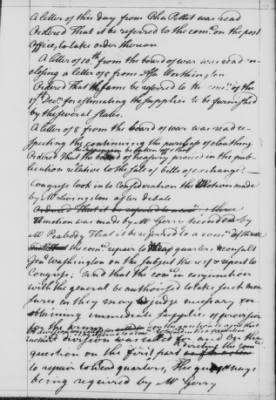 A letter of this day from John Pettit was read
Ordered That it be referred to the com.ee on the post
Office, to take order thereon
A letter of 10th from the board of war was read in-
closing a letter of 5 from
Ordered That the same be referred to the com.ee of the
17 Dec.r for estimating the supplies to be furnished
by the several states.
A letter of 8 from the board of war was read re-
specting the continuing the purchase of cloathing
Ordered That the board of treasury proceed in the pub-
lication relative to the sale of bills of exchange.
Congress took into Consideration the Motion made
by Mr Livingston after debate
A motion was made by Mr Gerry seconded by
Mr Peabody That it be referred to a com.ee of three
the com.ee repair to Head quarters & consult
Gen.l Washington on the subject & report to
Congress; And that the com.ee in conjunction
with the general be authorised to take such mea
sures as they may judge necessary for
obtaining immediate supplies of provision
for the army
division was called for and on the
question on the first part directing the com.ee
to repair to head quarters, The yeas & nays
being required by Mr Gerry